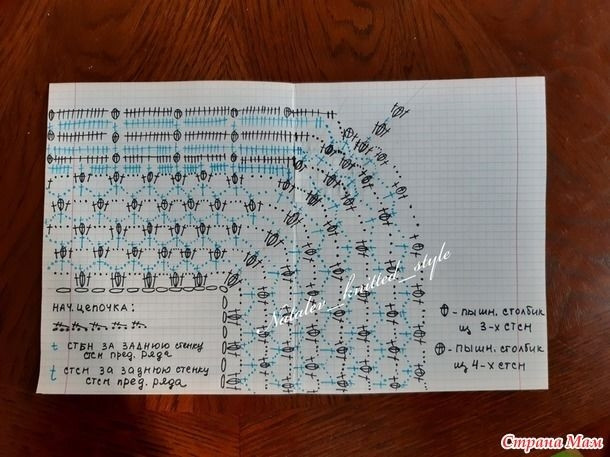 НАЧ. ЦЕПОЧКА:
СТБН ЗА ЗАДНЮЮ СТЕНКУ
СТСН ПРЕД. РЯДА
СТСН ЗА ЗАДНЮЮ СТЕНКУ
СТСН ПРЕД. РЯДА
Natalev_knitted_style
- ПЫШН. СТОЛБИК
ИЗ 3-Х СТСН
- ПЫШН. СТОЛБИК
ИЗ 4-Х СТСН
Страна Мам